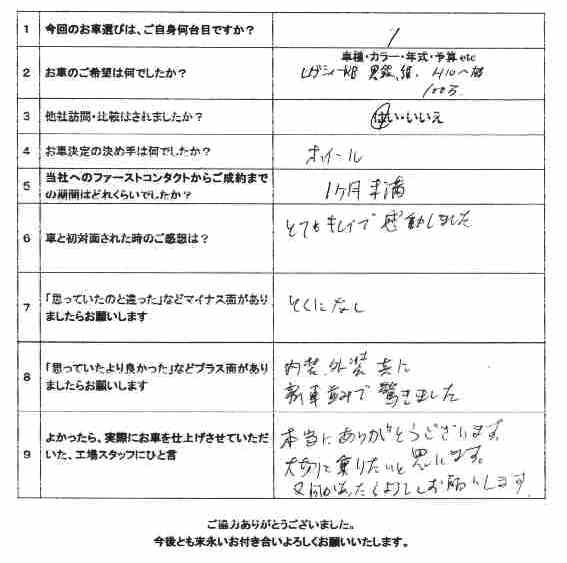 1 今回のお車選びは、ご自身何台目ですか？ 1
車種・カラー・年式・予算 etc
2 お車のご希望は何でしたか？ レガシィB4 黒銀、紺、H10〜
100万
3 他社訪問・比較はされましたか？ はい・いいえ
4 お車決定の決め手は何でしたか？ ホイール
5 当社へのファーストコンタクトからご成約まで
の期間はどれくらいでしたか？ 1ヶ月未満
6 車と初対面された時のご感想は？ とてもキレイで感動しました
7 「思っていたのと違った」などマイナス面があり
ましたらお願いします とくになし
8 「思っていたより良かった」などプラス面があり
ましたらお願いします 内装、外装共に
新車並みで驚きました
9 よかったら、実際にお車を仕上げさせていただ
いた、工場スタッフにひと言 本当にありがとうございます。
大切に乗りたいと思います。
又何かあったらよろしくお願いします
ご協力ありがとうございました。
今後とも末永いお付き合いよろしくお願いいたします。